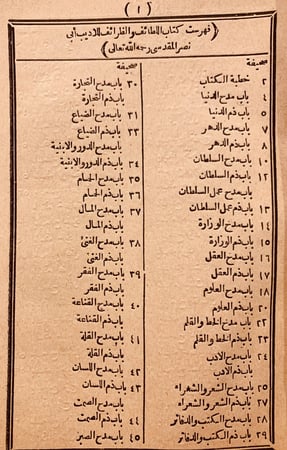 (١)
(فهرست كتاب اللطائف والظرائف للاديب أبي
نصر المقدسي رحمه الله تعالى)
صحيفة
٢ خطبة الكتاب
٤ باب مدح الدنيا
٥ باب ذم الدنيا
٧ باب مدح الدهر
٨ باب ذم الدهر
١٠ باب مدح السلطان
١٢ باب ذم السلطان
باب مدح عمل السلطان
١٣ باب ذم عمل السلطان
١٤ باب مدح الوزارة
١٥ باب ذم الوزارة
١٦ باب مدح العقل
١٧ باب ذم العقل
١٨ باب مدح العلوم
٢٠ باب ذم العلوم
٢٢ باب مدح الخط والقلم
٢٣ باب ذم الخط والقلم
٢٤ باب مدح الادب
باب ذم الادب
٢٥ باب مدح الشعر والشعراء
٢٧ باب ذم الشعر والشعراء
٢٨ باب مدح الكتب والدفاتر
٢٩ باب ذم الكتب والدفاتر
صحيفة
٣٠ باب مدح التجارة
باب ذم التجارة
٣١ باب مدح الضياع
٣٣ باب ذم الضياع
باب مدح الدور والابنية
٣٤ باب ذم الدور والابنية
٣٥ باب مدح الحمام
٣٦ باب ذم الحمام
٣٧ باب مدح المال
باب ذم المال
٣٨ باب مدح الغنى
باب ذم الغنى
٣٩ باب مدح الفقر
باب ذم الفقر
٤٠ باب مدح القناعة
باب ذم القناعة
٤١ باب مدح القلة
باب ذم القلة
٤٢ باب مدح اللسان
٤٣ باب ذم اللسان
باب مدح الصمت
٤٤ باب ذم الصمت
٤٥ باب مدح الصبر